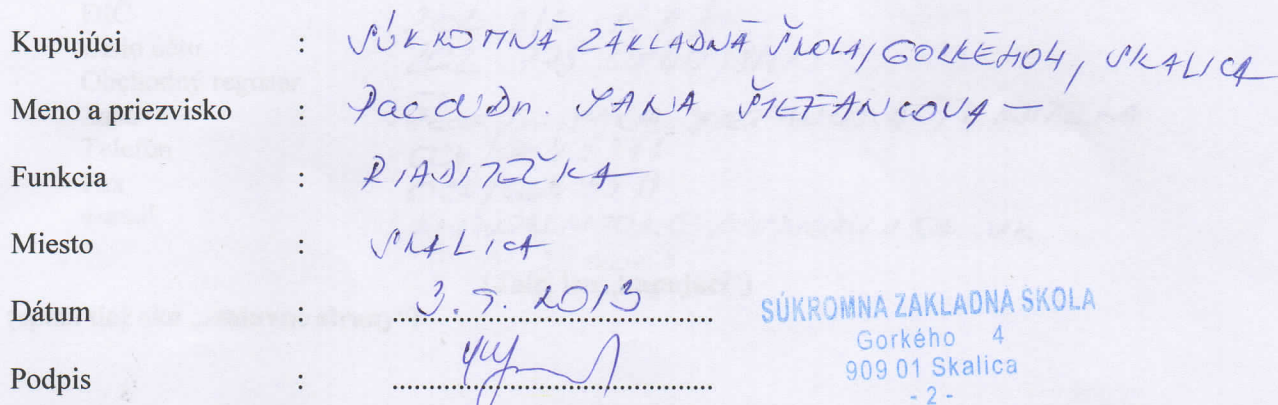 Kupujúci : SÚKROMNÁ ZÁKLADNÁ ŠKOLA, GORKÉHO 4, SKALICA
Meno a priezvisko : PaedDr. JANA ŠTEFANCOVÁ
Funkcia : RIADITEĽKA
Miesto : SKALICA
Dátum : 3.5.2013
Podpis :
SÚKROMNÁ ZÁKLADNÁ ŠKOLA
Gorkého 4
909 01 Skalica
- 2 -